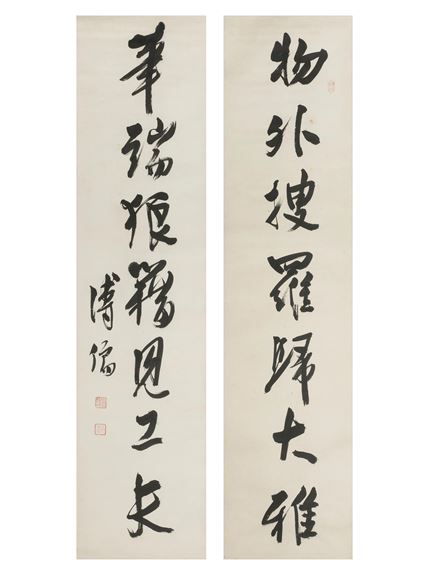 物外搜羅歸大雅
筆端狼籍見工夫
溥儒